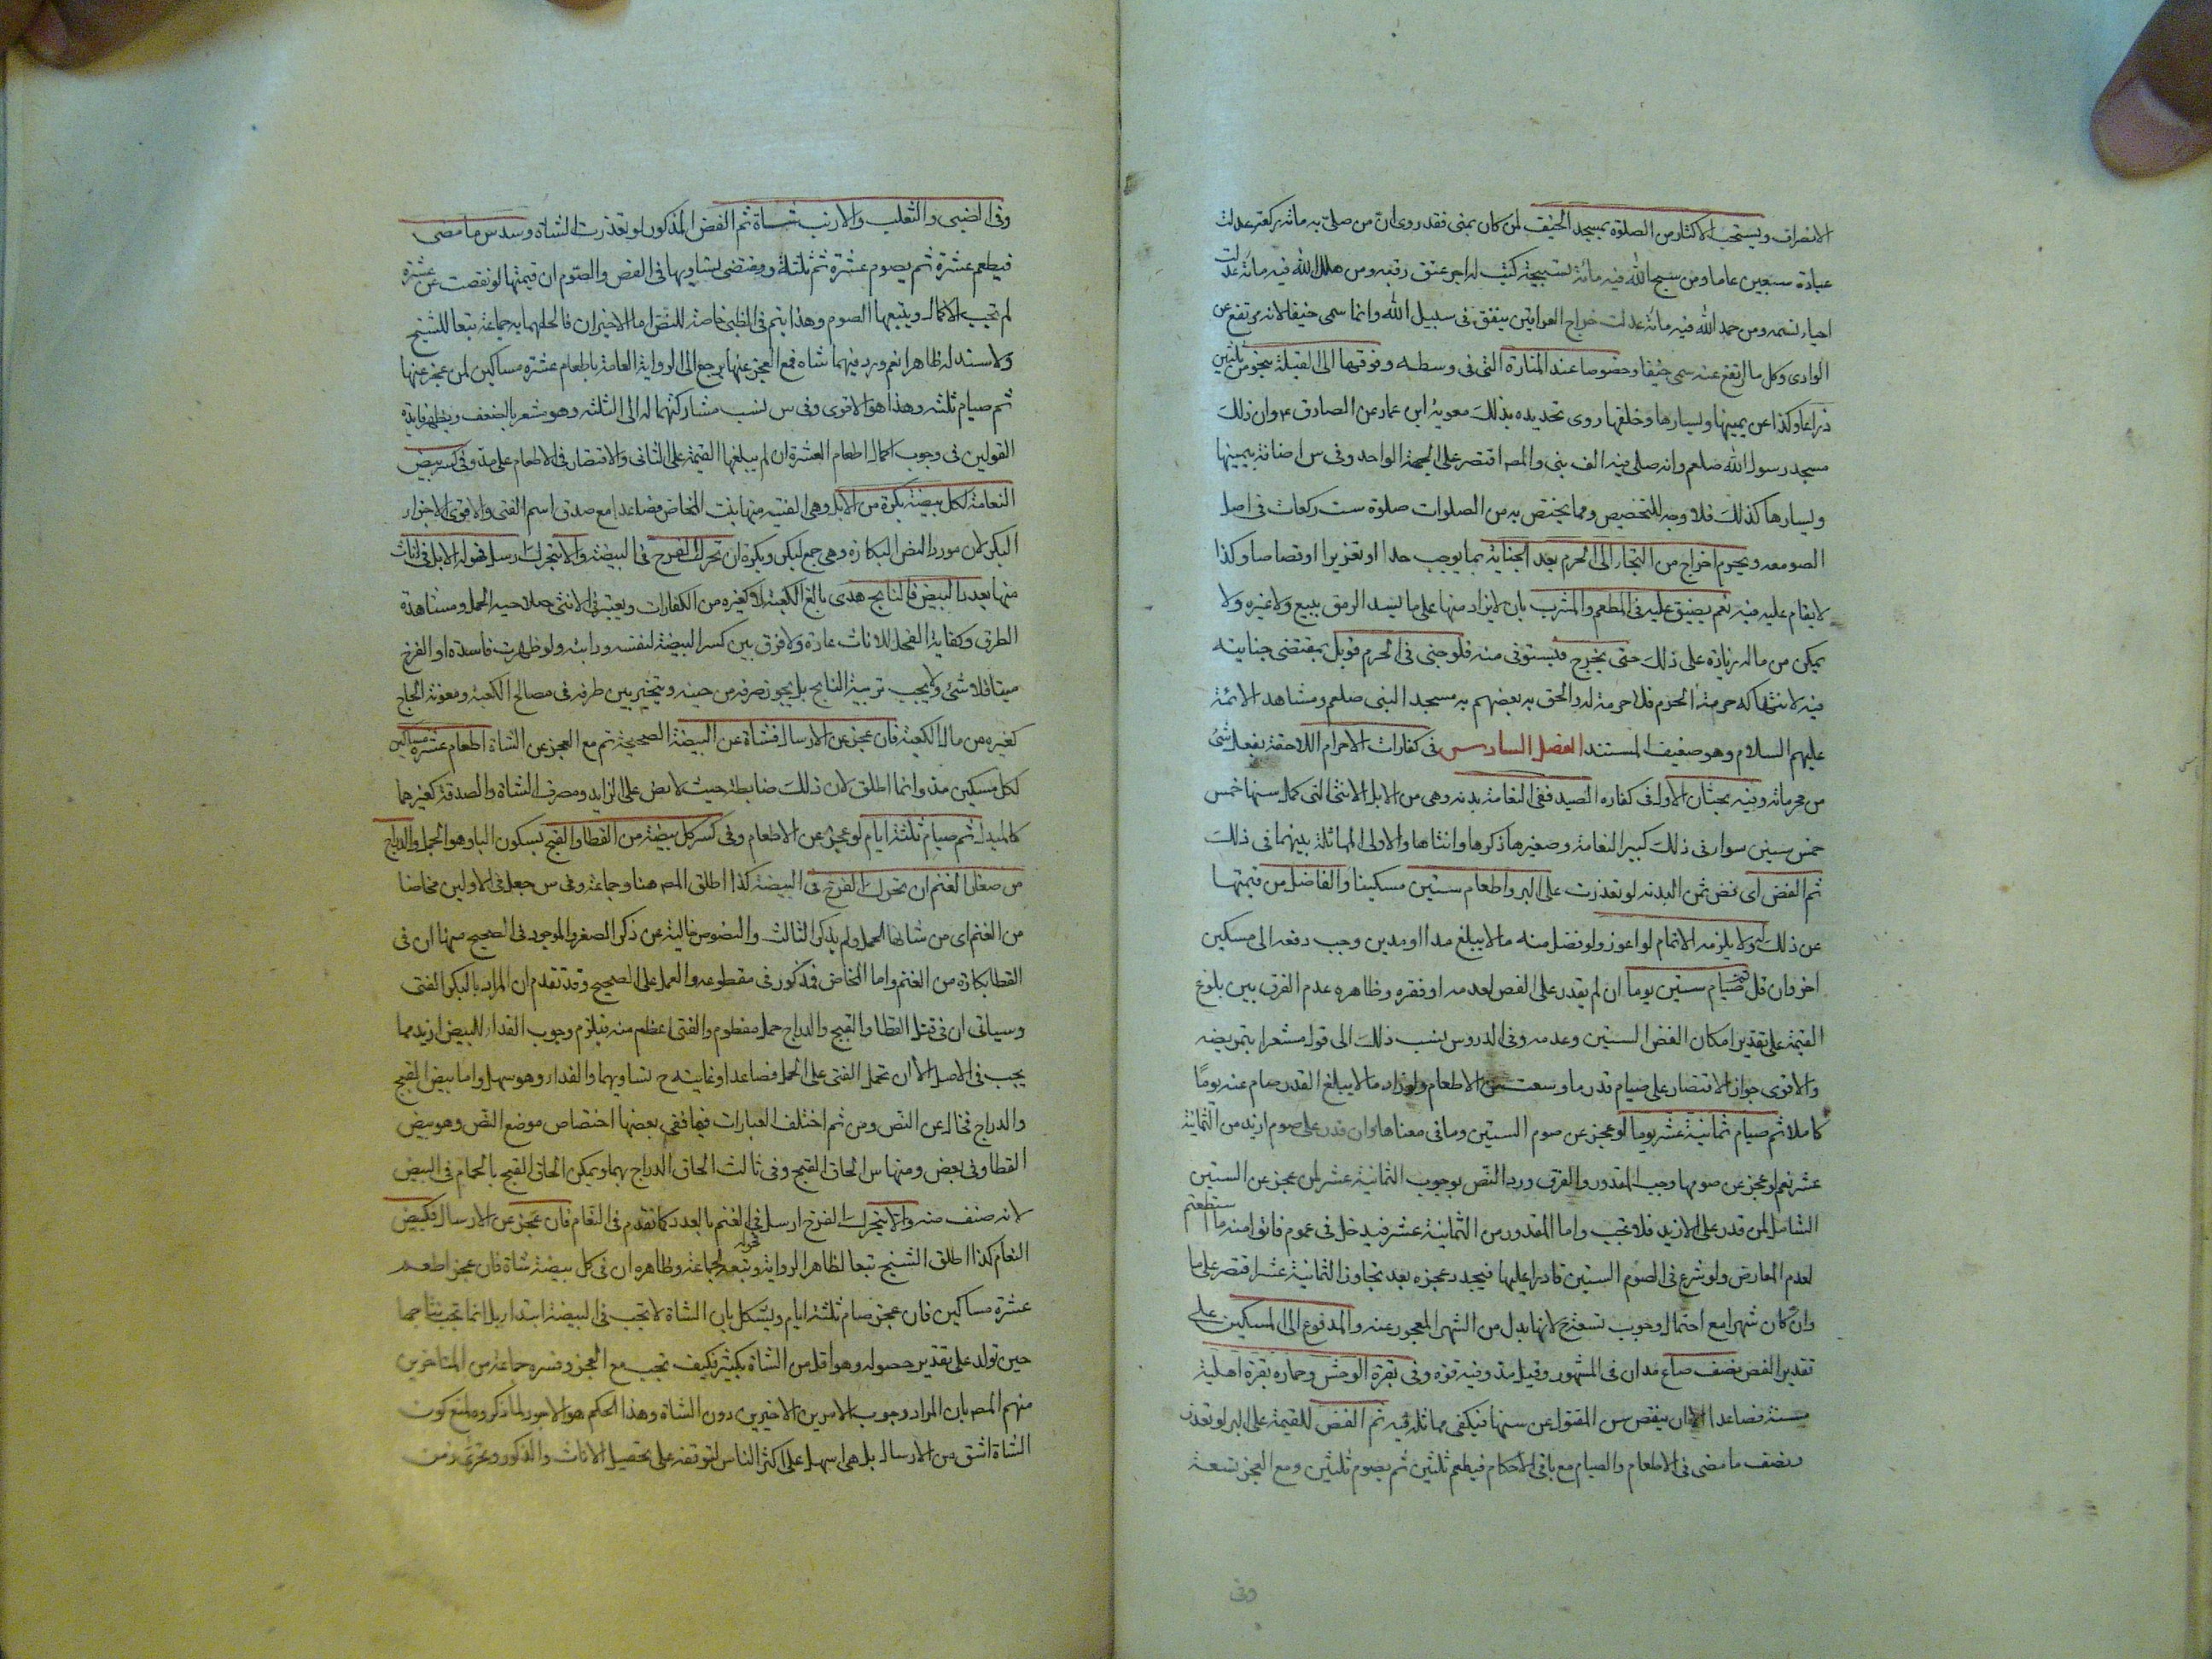 الانصراف ويستحب الاكثار من الصلوة بمسجد الخيف لمن كان بمنى فقد روى انّ من صلى به مائة ركعة عدلت
عبادة سبعين عاما ومن سبح الله فيه مائة تسبيحة كتب له اجر عتق رقبه ومن هلل الله فيه مائة عدلت
احياء نسمه ومن حمد الله فيه مائة عدلت خراج العراقين ينفق فى سبيل الله وانما سمى خيفا لانه مرتفع عن
الوادى وكل ما ارتفع عنه سمى خيفا وخصوصا عند المنارة التى فى وسطه وفوقها الى القبلة بنحو من ثلثين
ذراعا وكذا عن يمينها ويسارها وخلفها روى تحديده بذلك معوية ابن عمار عن الصادق ع وان ذلك
مسجد رسول الله صلعم وانه صلى فيه الف نبى والمص اقتصر على الجهة الواحد وفى س اضافة يمينها
ويسارها كذلك فلا وجه للتخصيص ومما يختص به من الصلوات صلوة ست ركعات فى اصل
الصومعه ويحرم اخراج من التجاء الى الحرم بعد الجناية بما يوجب حدا او تعزيرا او قصاصا وكذا
لا يقام عليه فيه نعم يضيق عليه فى المطعم والمشرب بان لا يزاد منها على ما يسد الرمق ببيع ولا غيره ولا
يمكن من ماله زيادة على ذلك حتى يخرج فيستوفى منه فلو جنى فى الحرم قوبل بمقتضى جنايته
فيه لانتهاكه حرمة الحرم فلا حرمة له والحق به بعضهم به مسجد النبى صلعم ومشاهد الائمة
عليهم السلام وهو ضعيف المستند الفصل السادس فى كفارات الاحرام اللاحقة بفعل شئ
من محرماته وفيه بحثان الاول فى كفاره الصيد ففى النعامة بدنه وهى من الابل الانثى التى كمل سنها خمس
خمس سنين سواء فى ذلك كبير النعامة وصغيرها ذكرها وانثاها والاولى المماثلة بينهما فى ذلك
ثم الفض اى فض ثمن البدنه لو تعذرت على البر واطعام ستين مسكينا والفاضل من قيمتها
عن ذلك له ولا يلزمه الاتمام لو اعوز ولو فضل منه ما لا يبلغ مدا او مدين وجب دفعه الى مسكين
اخر وان قل ثم صيام ستين يوما ان لم يقدر على الفض لعدمه او فقره وظاهره عدم الفرق بين بلوغ
القيمة على تقدير امكان الفض الستين وعدمه وفى الدروس نسب ذلك الى قول مشعرا بتمريضه
والاقوى جواز الاقتصار على صيام قدر ما وسعت من الاطعام ولو زاد ما لا يبلغ القدر صام عنه يومًا
كاملا ثم صيام ثمانية عشر يوما لو عجز عن صوم الستين وما فى معناها وان قدر على صوم ازيد من الثمانية
عشر نعم لو عجز عن صومها وجب المقدور والفرق ورد النص بوجوب الثمانية عشر لمن عجز عن الستين
الشامل لمن قدر على الازيد فلا تجب واما المقدور من الثمانية عشر فيدخل فى عموم فاتوا منه ما استطعتم
لعدم المعارض ولو شرع فى الصوم الستين قادرا عليها فيجدد عجزه بعد تجاوز الثمانية عشر اقتصر على ما
وان كان شهرا مع احتمال وجوب تسعة ح لانها بدل من الشهر المعجوز عنه والمدفوع الى المسكين على
تقدير الفض نصف صاع مدان فى المشهور وقيل مد وفيه قوه وفى بقرة الوحش وحماره بقرة اهلية
مسنة فصاعدا الا ان ينقص سن المقتول عن سنها فيكفى مماثله فيه ثم الفض للقيمة على البر لو تعذر
ونصف ما مضى فى الاطعام والصيام مع باقى الاحكام فيطعم ثلثين ثم يصوم ثلثين ومع العجز تسعة
وفى
وفى الضبى والثعلب والارنب شاة ثم الفض المذكور لو تعذرت الشاة وسدس ما مضى
فيطعم عشرة ثم يصوم عشرة ثم ثلثة ومقتضى تساويها فى الفض والصّوم ان قيمتها لو نقصت عن عشرة
لم تجب الاكمال ويتبعها الصوم وهذا يتم فى الظبى خاصة للنص اما الاخيران فالحقهما به جماعة تبعا للشيخ
ولا سند له ظاهرا نعم ورد فيهما شاه فمع العجز عنها يرجع الى الرواية العامة باطعام عشرة مساكين لمن عجز عنها
ثم صيام ثلثه وهذا هو الاقوى وفى س نسب مشاركتهما له الى الثلثه وهو مشعر بالضعف ويظهر فايدة
القولين فى وجوب اكمال اطعام العشرة ان لم يبلغها القيمة على الثانى والاقتصار فى الاطعام على مد وفى كسر بيض
النعامة لكل بيضة بكرة من الابل وهى الفتيه منها بنت المخاض فصاعدا مع صدق اسم الفتى والاقوى الاجزاء
البكر لان مورد النص البكارة وهى جمع لبكر وبكرة ان تحرك الفرخ فى البيضة والا يتحرك ارسل فحولة الابل فى اناث
منها بعدد البيض فالناتج هدى بالغ الكعبة لا كغيره من الكفارات ويعتبر فى الانثى صلاحيه الحمل ومشاهدة
الطرق وكفاية الفحل للاناث عادة ولا فرق بين كسر البيضة لنفسه ودابته ولو ظهرت فاسدة او الفرخ
ميتا فلا شئ ولا يجب تربية الناتج بل يجوز صرفه من حينه ويتخير بين صرفه فى مصالح الكعبة ومعونة الحاج
كغيره من مال الكعبة فان عجز عن الارسال فشاة عن البيضة الصحيحة ثم مع العجز عن الشاة اطعام عشرة مساكين
لكل مسكين مد وانما اطلق لان ذلك ضابطة حيث لا نص على الزايد ومصرف الشاة والصدقة كغيرهما
كالمبدل ثم صيام ثلثة ايام لو عجز عن الاطعام وفى كسر كل بيضة من القطا والقبج بسكون البا وهو الحجل والدراج
من صغار الغنم ان تحرك الفرخ فى البيضة كذا اطلق المص هنا وجماعة وفى س جعل فى الاولين مخاضا
من الغنم اى من شانها الحمل ولم يذكر الثالث والنصوص خالية عن ذكر الصغر والموجود فى الصحيح منها ان فى
القطا بكارة من الغنم واما المخاض فمذكور فى مقطوعه والعمل على الصحيح وقد تقدم ان المراد بالبكر الفتى
وسياتى ان فى قتل القطا والقبج والدراج حمل مفطوم والفتى اعظم منه فيلزم وجوب الفداء للبيض ازيد مما
يجب فى الاصل الا ان تحمل الفتى على الحمل فصاعدا وغايته ح تساويهما والفداء وهو سهل واما بيض القبج
والدراج فخال عن النّص ومن ثم اختلف العبارات فيها ففى بعضها اختصاص موضع النص وهو بيض
القطا وفى بعض ومنها س الحاق القبج وفى ثالث الحاق الدراج بهما ويمكن الحاق القبج بالحمام فى البيض
لانه صنف منه والا يتحرك الفرخ ارسل فى الغنم بالعدد كما تقدم فى النعام فان عجز عن الارسال فكبيض
النعام كذا اطلق الشيخ تبعا لظاهر الرواية وتبعه الجماعة وظاهره ان فى كل بيضة شاة فان عجز اطعم
عشرة مساكين فان عجز صام ثلثة ايام ويشكل بان الشاة لا تجب فى البيضة ابتداء بل انما تجب نتاجها
حين تولد على تقدير حصوله وهو اقل من الشاة بكثير فكيف تجب مع العجز وفسره جماعة من المتاخرين
منهم المص بان المراد وجوب الامرين الاخيرين دون الشاة وهذا الحكم هو الاجود لما ذكر ولمنع كون
الشاة اشق من الارسال بل هى اسهل على اكثر الناس لتوقفه على تحصيل الاناث والذكور وتحرى زمن